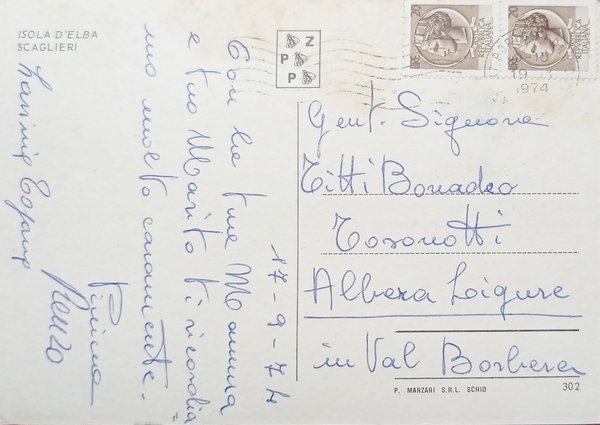 ISOLA D'ELBA
SCAGLIERI
17-9-74
Con la tua Mamma
e tuo Marito ti ricordia
mo molto caramente.
Pinina
Renzo
Z
P P
20
LIRE
REPUBBLICA
ITALIANA
20
LIRE
REPUBBLICA
ITALIANA
19
1974
Gent. Signora
Titti Bonadeo
Tosonotti
Albera Ligure
in Val Borbera
P. MARZARI S.R.L. SCHIO
302